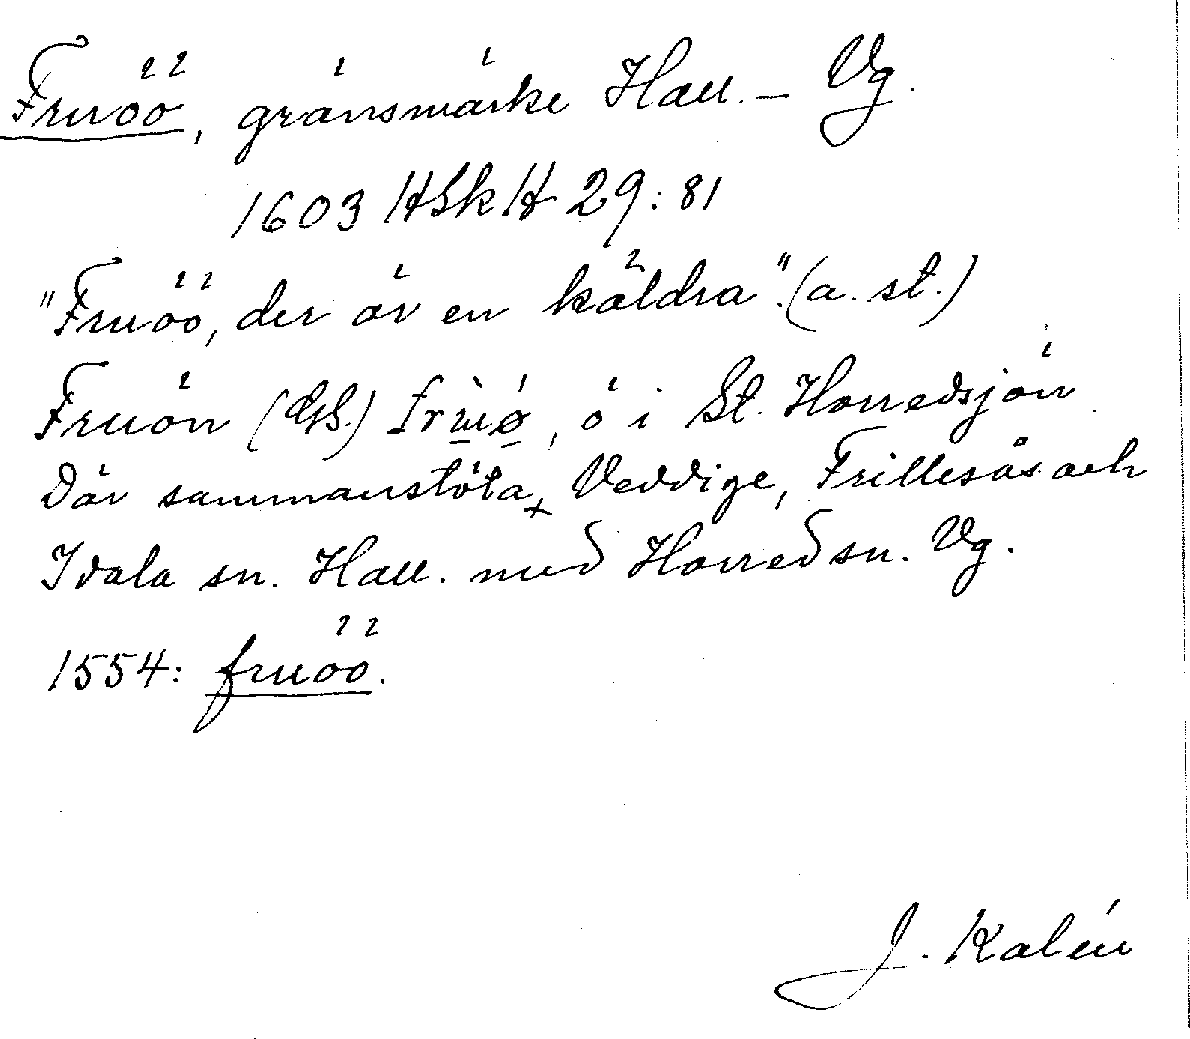 Fruöö, gränsmärke Hall. – Vg.
1603 HSkH 29:81
"Fruöö, der är en käldra". (a. st.)
Fruön (GS.) frùø, ö i St. Horredsjön.
Där sammanstöta Veddige, Frillesås och
Idala sn. Hall. med Horred sn. Vg.
1554: fruöö.
J. Kalén